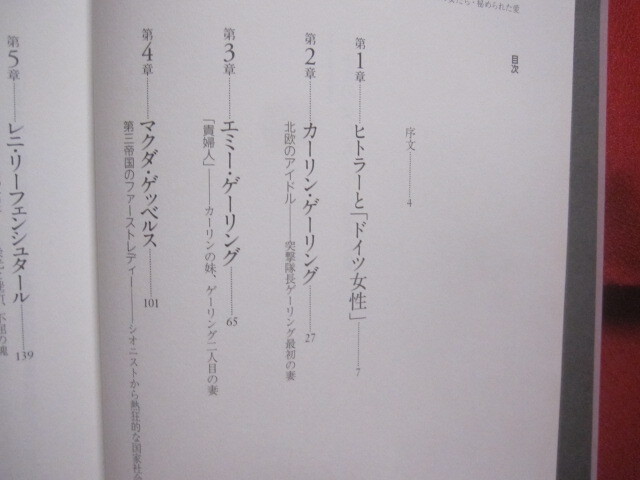 秘められた愛
目次
序文 4
第1章 ヒトラーと「ドイツ女性」 7
第2章 カーリン・ゲーリング 27
北欧のアイドル――突撃隊長ゲーリング最初の妻
第3章 エミー・ゲーリング 65
「貴婦人」――カーリンの妹、ゲーリング二人目の妻
第4章 マクダ・ゲッベルス 101
第三帝国のファーストレディー――シオニストから熱狂的な国家社会
第5章 レニ・リーフェンシュタール 139